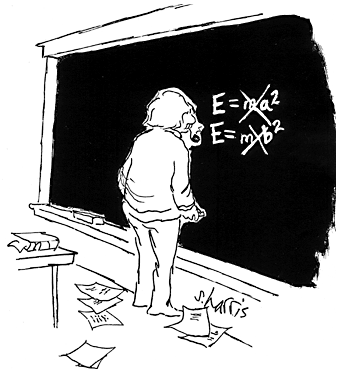 E = ma²
E = mb²
S. Harris